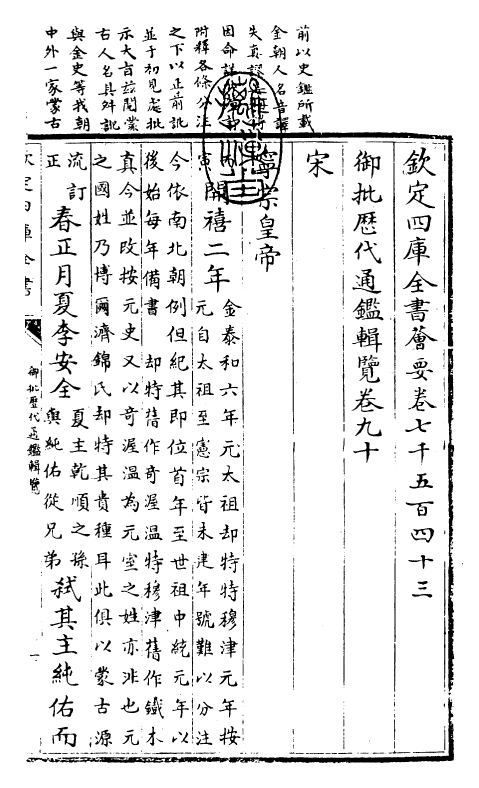 前以史鑑所載
金朝人名音譯
失真謬
因命詳
附釋各條分注
之下以正前訛
並于初見處批
示大旨茲閱蒙
古人名具舛訛
與金史等我朝
中外一家蒙古
欽定四庫全書薈要卷七千五百四十三
御批歷代通鑑輯覽卷九十
宋
寧宗皇帝
寅開禧二年
金泰和六年元太祖却特特穆津元年按
元自太祖至憲宗皆未建年號難以分注
今依南北朝例但紀其即位首年至世祖中統元年以
後始每年備書 却特舊作奇渥溫特穆津舊作鐵木
真今並改按元史又以奇渥溫為元室之姓亦非也元
之國姓乃博爾濟錦氏却特其貴種耳此俱以蒙古源
流訂
正
春正月夏李安全
夏主乾順之孫
與純佑從兄弟
弒其主純佑而
欽定四庫全書
御批歷代通鑑輯覽
一